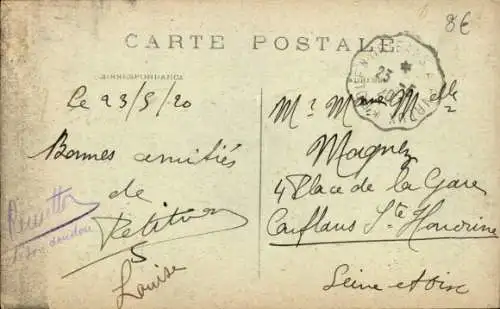 8€
CARTE POSTALE
CORRESPONDANCE
Le 23/5/20
Bonnes amitiés
de
Petition
Louise
Mr Mme Melle
Magnez
4 Place de la Gare
Conflans Ste Honorine
Seine et Oise